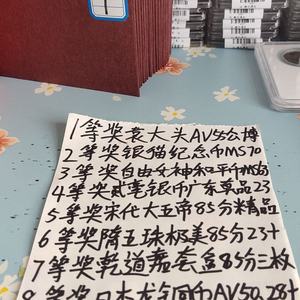 1
1等奖袁大头AV55公博
2等奖银猫纪念币MS70
3等奖自由女神和平币MS63
4等奖贰毫银币广东草品23
5等奖宋代大五帝85分米精品
6等奖隋五珠极美85分23+
7等奖乾道元套盒85分三枚
8等奖日本龙银同币AV50.28+